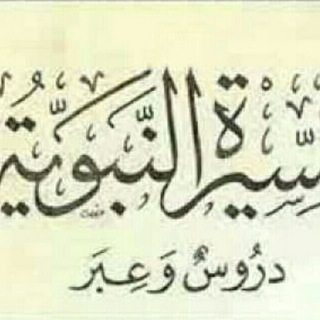 سيرة النَّبَوِيَّة
دُرُوسٌ وَعِبَر